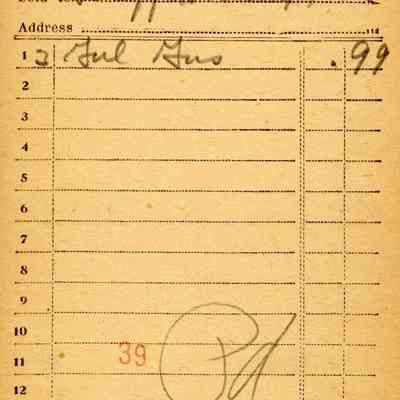 Address
1 3 Gul Gus .99
2
3
4
5
6
7
8
9
10
39
11
12
Pd